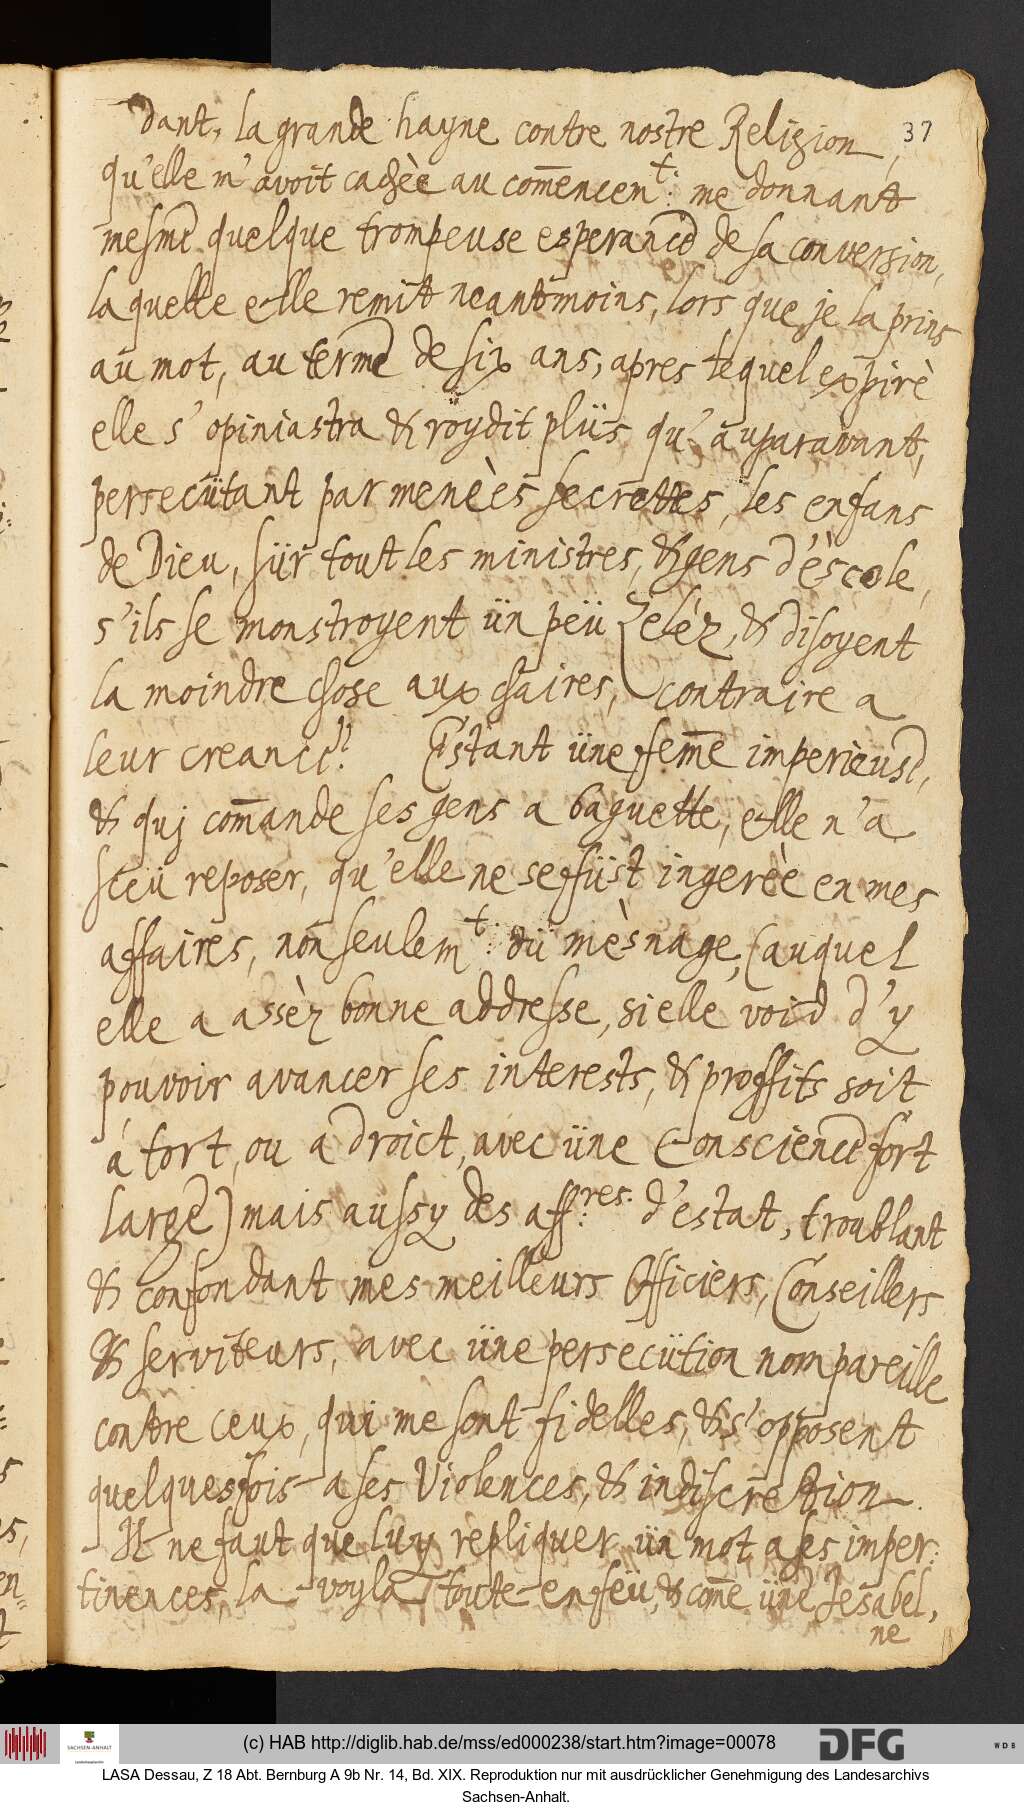 37
dant, la grande hayne contre nostre Religion,
qu'elle m'avoit cachèe au com̄encem̄t: me donnant
mesme quelque trompeuse esperance de sa conversion,
laquelle elle remit neantmoins, lors que je la prins
au mot, au terme de six ans, apres lequel expirè
elle s'opiniastra & roydit plüs qu'auparavant,
persecütant par menèes secrettes, les enfans
de Dieu, sür tout les ministres, & gens d'èscole,
s'ils se monstroyent ün peü zelèz, & disoyent
la moindre chose aux chaires, contraire a
leur creance.!! Estant üne fem̄e imperieuse,
& quj com̄ande ses gens a baguette, elle n'a
sceü reposer, qu'elle ne se füst ingerèe en mes
affaires, non seulem̄t: dü mèsnage, (auquel
elle a assèz bonne addresse, si elle void d'y
pouvoir avancer ses interests, & proffits soit
á tort, ou a droict, avec üne Conscience fort
large) mais aussy des aff:res. d'estat, troublant
& confondant mes meilleurs Officiers, Conseillers
& serviteurs, avec üne persecütion nompareille
contre ceux, qui me sont fidelles, & s'opposent
quelquesfois a ses Violences, & indiscretion.
Il ne faut que luy repliquer ün mot a ses imper:
tinences, la voyla toute en feü, & com̄e üne Jesabel,
ne
(c) HAB http://diglib.hab.de/mss/ed000238/start.htm?image=00078
SACHSEN-ANHALT
DFG
WDB
LASA Dessau, Z 18 Abt. Bernburg A 9b Nr. 14, Bd. XIX. Reproduktion nur mit ausdrücklicher Genehmigung des Landesarchivs
Sachsen-Anhalt.